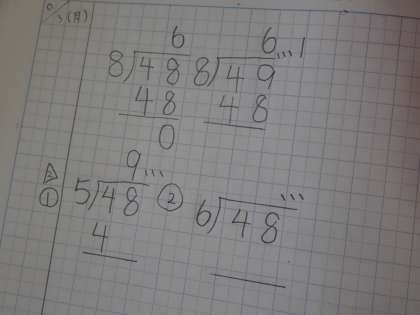 3(月)
6 6…1
8)48 8)49
48 48
0
9… …
① 5)48 ② 6)48
4